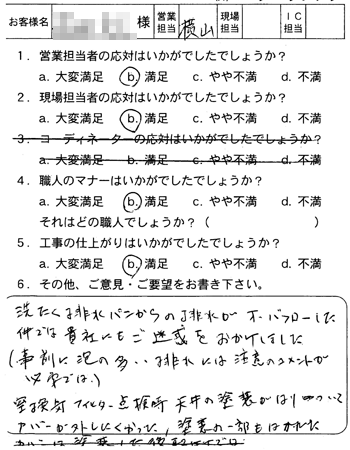 お客様名 様 営業担当 横山 現場担当 IC担当
1．営業担当者の応対はいかがでしたでしょうか？
a. 大変満足 b. 満足 c. やや不満 d. 不満
2．現場担当者の応対はいかがでしたでしょうか？
a. 大変満足 b. 満足 c. やや不満 d. 不満
3．コーディネーターの応対はいかがでしたでしょうか？
a. 大変満足 b. 満足 c. やや不満 d. 不満
4．職人のマナーはいかがでしたでしょうか？
a. 大変満足 b. 満足 c. やや不満 d. 不満
それはどの職人でしょうか？（ ）
5．工事の仕上がりはいかがでしたでしょうか？
a. 大変満足 b. 満足 c. やや不満 d. 不満
6．その他、ご意見・ご要望をお書き下さい。
洗たく排水パンからの排水がオーバフローした
件では貴社にもご迷惑をおかけしました
(事前に泡の多い排水には注意のコメントが
必要では.)
フィルター点検時 天井の塗装がはりついて
カバーが外しにくかった, 塗装の一部もはがれた
カバーは塗装した後